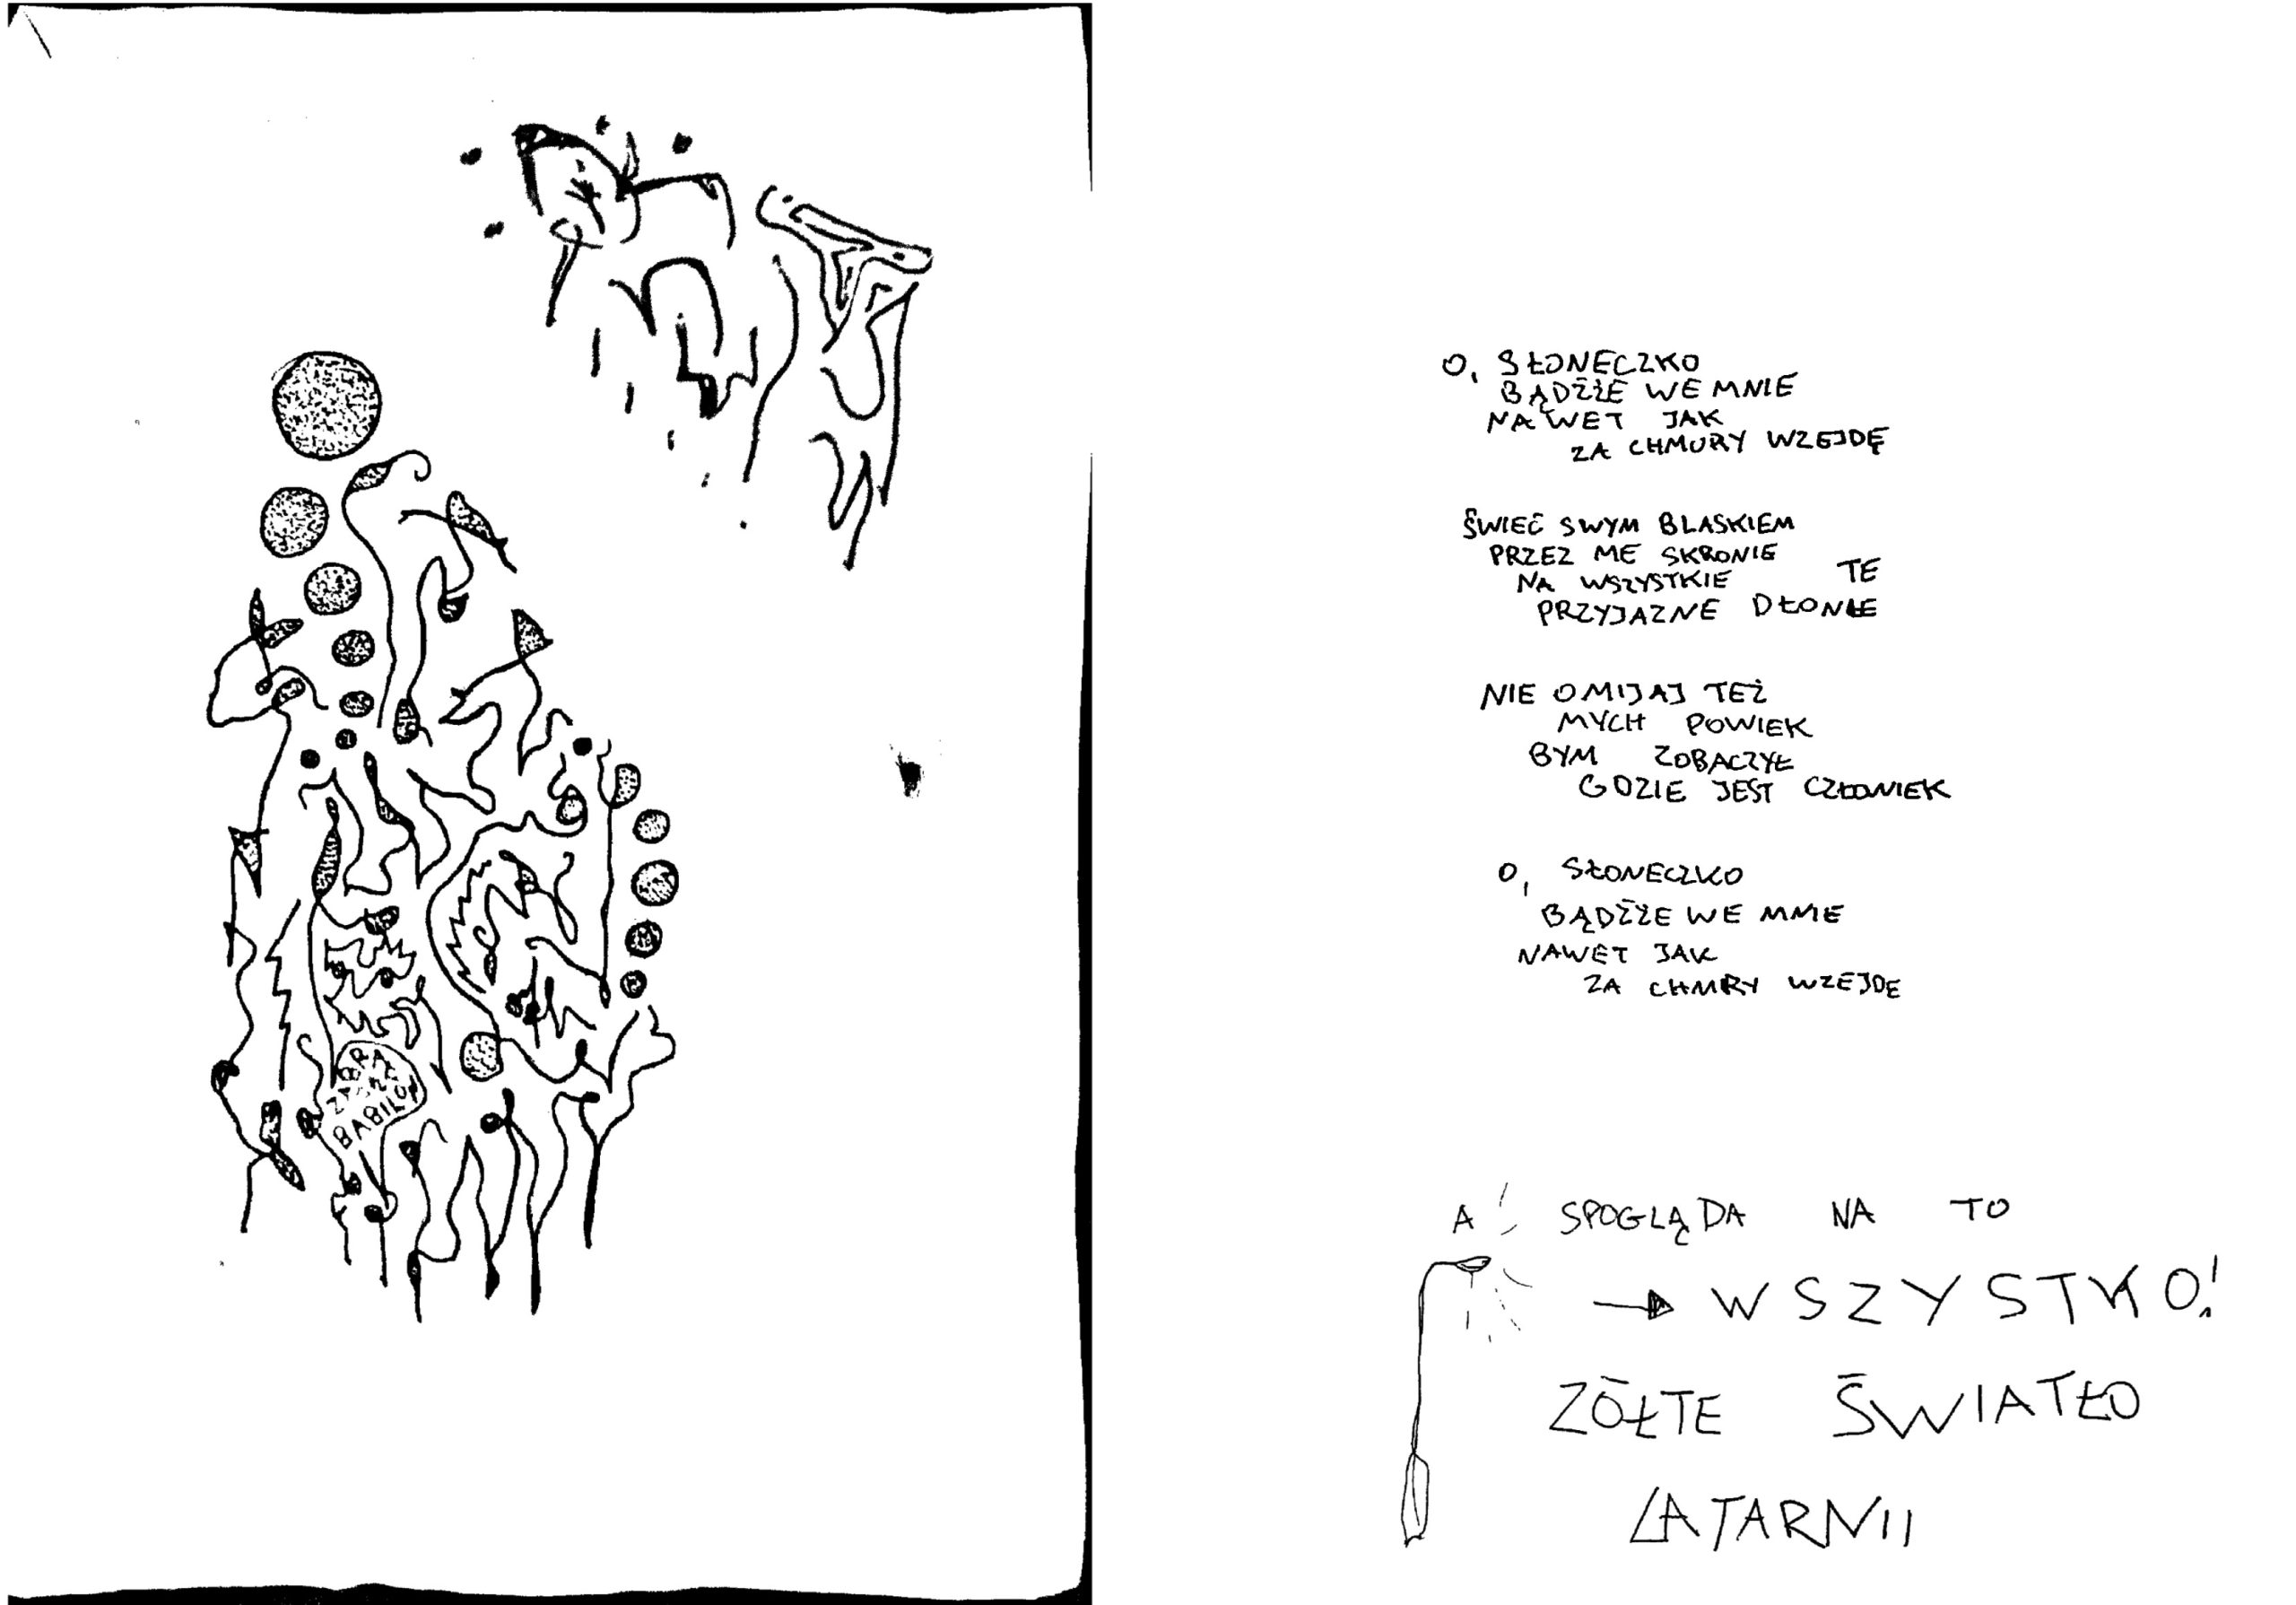 O, SŁONECZKO
BĄDŹŻE WE MNIE
NAWET JAK
ZA CHMURY WZEJDĘ
ŚWIEĆ SWYM BLASKIEM
PRZEZ ME SKRONIE
NA WSZYSTKIE TE
PRZYJAZNE DŁONIE
NIE OMIJAJ TEŻ
MYCH POWIEK
BYM ZOBACZYŁ
GDZIE JEST CZŁOWIEK
O, SŁONECZKO
BĄDŹŻE WE MNIE
NAWET JAK
ZA CHMRY WZEJDĘ
A SPOGLĄDA NA TO
WSZYSTKO!
ŻÓŁTE ŚWIATŁO
LATARNII